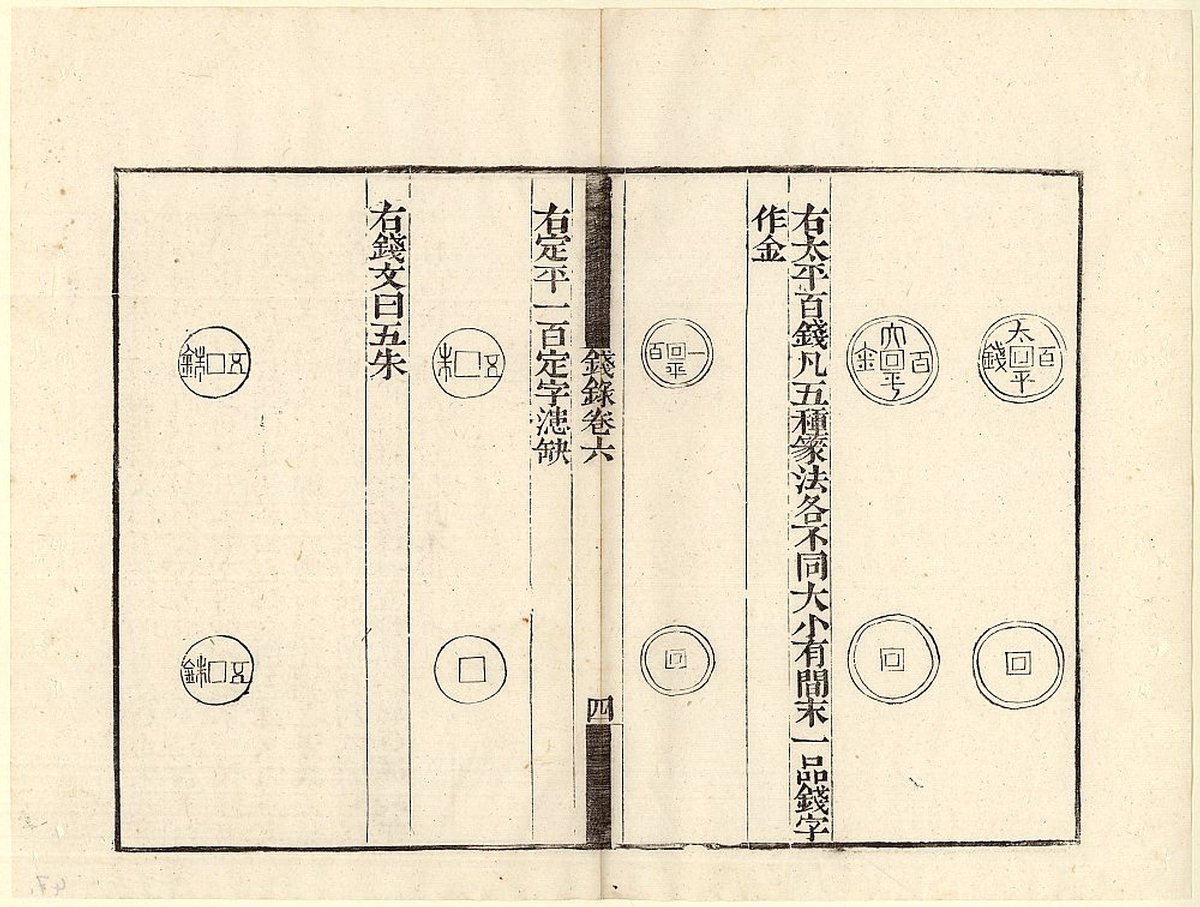 太平百錢
大平百金
右太平百錢凡五種篆法各不同大小有間末一品錢字
作金
一百平
錢錄卷六
四
右定平一百定字漶缺
五朱
右錢文曰五朱
五銖
五銖